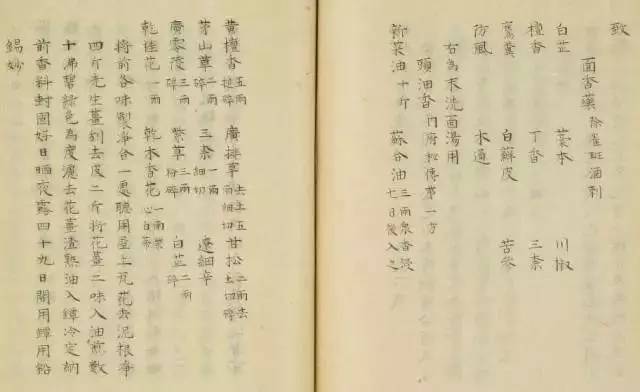 致
面香藥 除雀斑酒刺
白芷 藁本 川椒
檀香 丁香 三柰
鷹糞 白蘚皮 苦參
防風 木通
右為末洗面湯用
頭油香 內府秘傳第一方
新菜油十斤 蘇合油 三兩衆香浸七日後入之
黃檀香 五兩搥碎 廣排草 去土五兩細切 甘松 二兩去土切碎
茅山草 二兩碎 三柰 一兩細切 遼細辛
廣零陵 三兩碎 紫草 三兩碎 白芷 二兩碎
乾桂花 一兩 乾木香花 一兩紫心白
將前各味製淨合一處聽用屋上瓦花去泥根淨
四斤老生薑刮去皮二斤將花薑二味入油煎數
十沸碧綠色為度濾去花薑渣熟油入罈冷定納
前香料封固好日晒夜露四十九日開用罈用鉛
錫妙